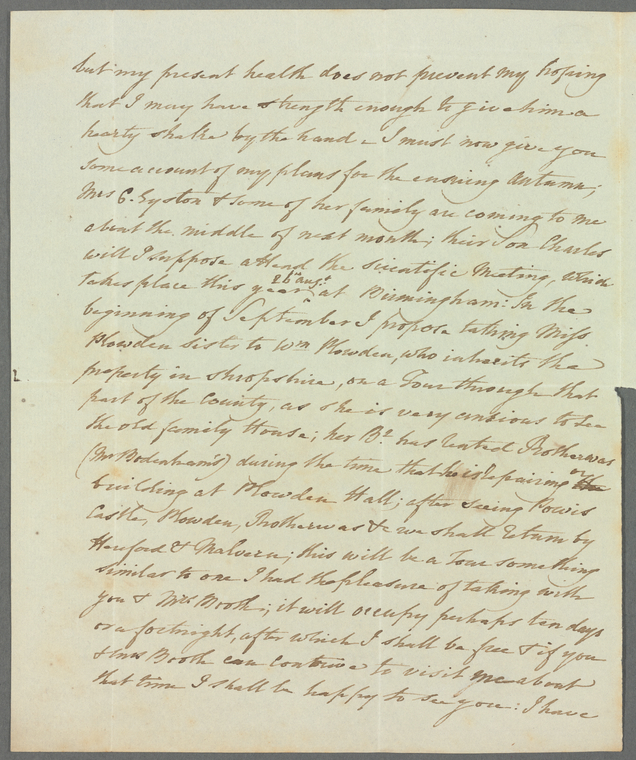 but my present health does not prevent my hoping
that I may have strength enough to give him a
hearty shake by the hand. I must now give you
some account of my plans for the ensuing Autumn;
Mrs C. Eyston & some of her family are coming to me
about the middle of next month; their Son Charles
will I suppose attend the scientific Meeting, which
takes place this year 26th Augt at Birmingham. In the
beginning of September I propose taking Miss
Plowden sister to Wm Plowden, who inherits the
property in Shropshire, on a Tour through that
part of the County, as she is very anxious to see
the old family House; her Br has rented Rotherwas
(Mr Bodenham's) during the time that he is repairing or
building at Plowden Hall; after seeing Powis
Castle, Plowden, Rotherwas &c we shall return by
Hereford & Malvern; this will be a Tour something
similar to one I had the pleasure of taking with
you & Mrs Booth; it will occupy perhaps ten days
or a fortnight, after which I shall be free & if you
& Mrs Booth can contrive to visit me about
that time I shall be happy to see you: I have